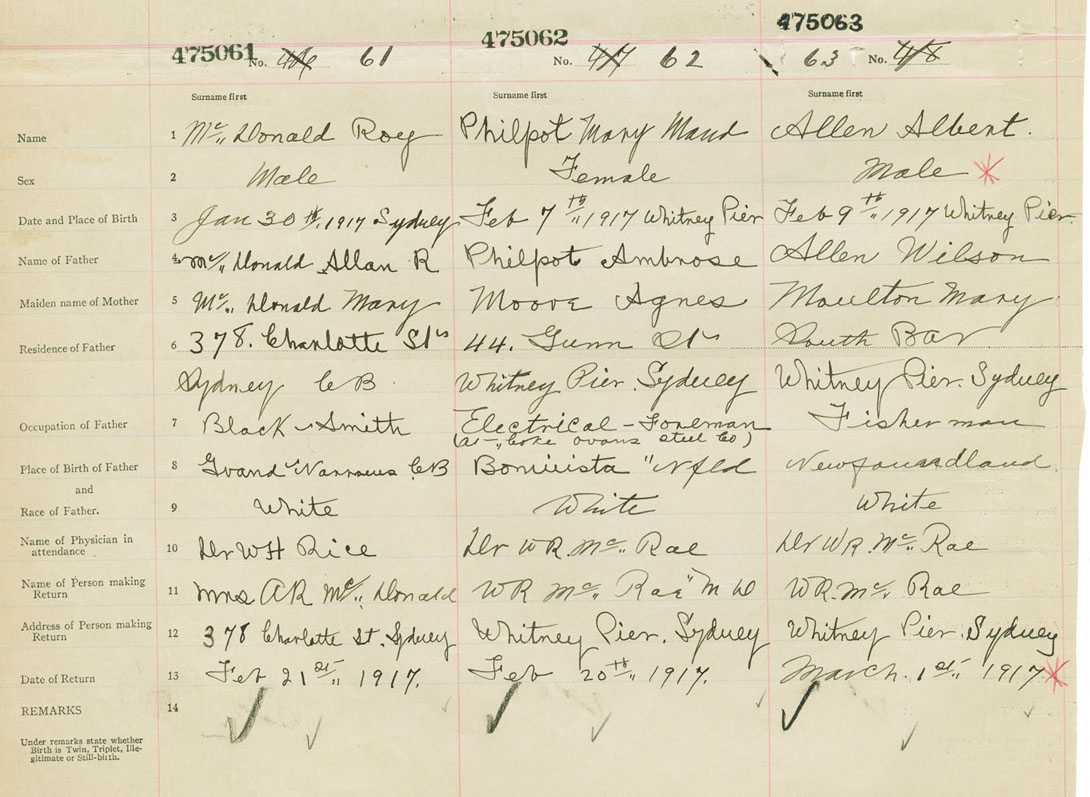 475061 475062 475063
No. 416 61 No. 417 62 63 No. 418
Surname first Surname first Surname first
Name 1 Mc,, Donald Roy Philpot Mary Maud Allen Albert.
Sex 2 Male Female Male
Date and Place of Birth 3 Jan 30th,, 1917 Sydney Feb 7th,, 1917 Whitney Pier Feb 9th,, 1917 Whitney Pier
Name of Father 4 Mc,, Donald Allan R Philpot Ambrose Allen Wilson
Maiden name of Mother 5 Mc,, Donald Mary Moore Agnes Moulton Mary
Residence of Father 6 378. Charlotte St 44. Gunn St South Bar
Sydney C B Whitney Pier. Sydney Whitney Pier. Sydney
Occupation of Father 7 Black-Smith Electrical - Foreman Fisherman
(at-,, Coke ovans steel Co)
Place of Birth of Father 8 Grand Narrows C.B Bonivista "Nfld Newfoundland
and
Race of Father. 9 White White White
Name of Physician in
attendance 10 Dr WH Rice Dr W R. Mc,, Rae Dr W R. Mc,, Rae
Name of Person making
Return 11 Mrs AR Mc,, Donald WR Mc,, Rae" M D WR. Mc,, Rae
Address of Person making
Return 12 378 Charlotte St. Sydney Whitney Pier. Sydney Whitney Pier. Sydney
Date of Return 13 Feb 21st,, 1917. Feb 20th,, 1917. March. 1st,, 1917
REMARKS 14
Under remarks state whether
Birth is Twin, Triplet, Ille-
gitimate or Still-birth.